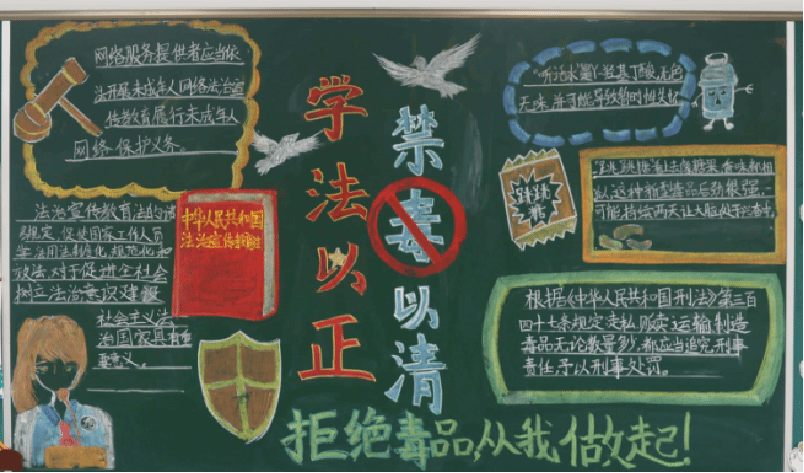 网络服务提供者应当依
法开展未成年人网络法治宣
传教育履行未成年人
网络保护义务。
法治宣传教育法的
规定,促使国家工作人员
法 规范化
对于促进全社会
树立法治意识建设
社会主义法
治国家具有重
要意义。
中华人民共和国
法治宣传教育法
学法以正
禁毒以清
无味
跳跳糖
这种新型毒品后劲很强,
可能持续两天让大脑处于
根据《中华人民共和国刑法》第三百
四十七条规定走私贩卖运输制造
毒品无论数量多少,都应当追究刑事
责任予以刑事处罚。
拒绝毒品,从我做起!